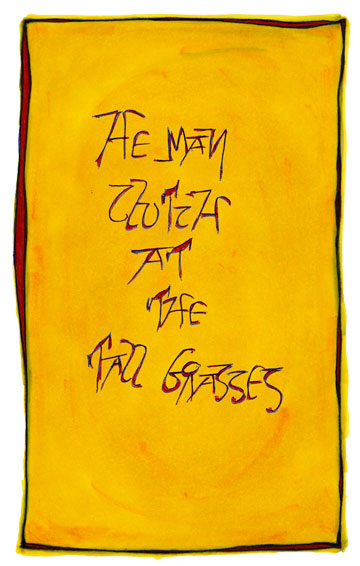 HE MAY
CLUTCH
AT
THE
TALL GRASSES